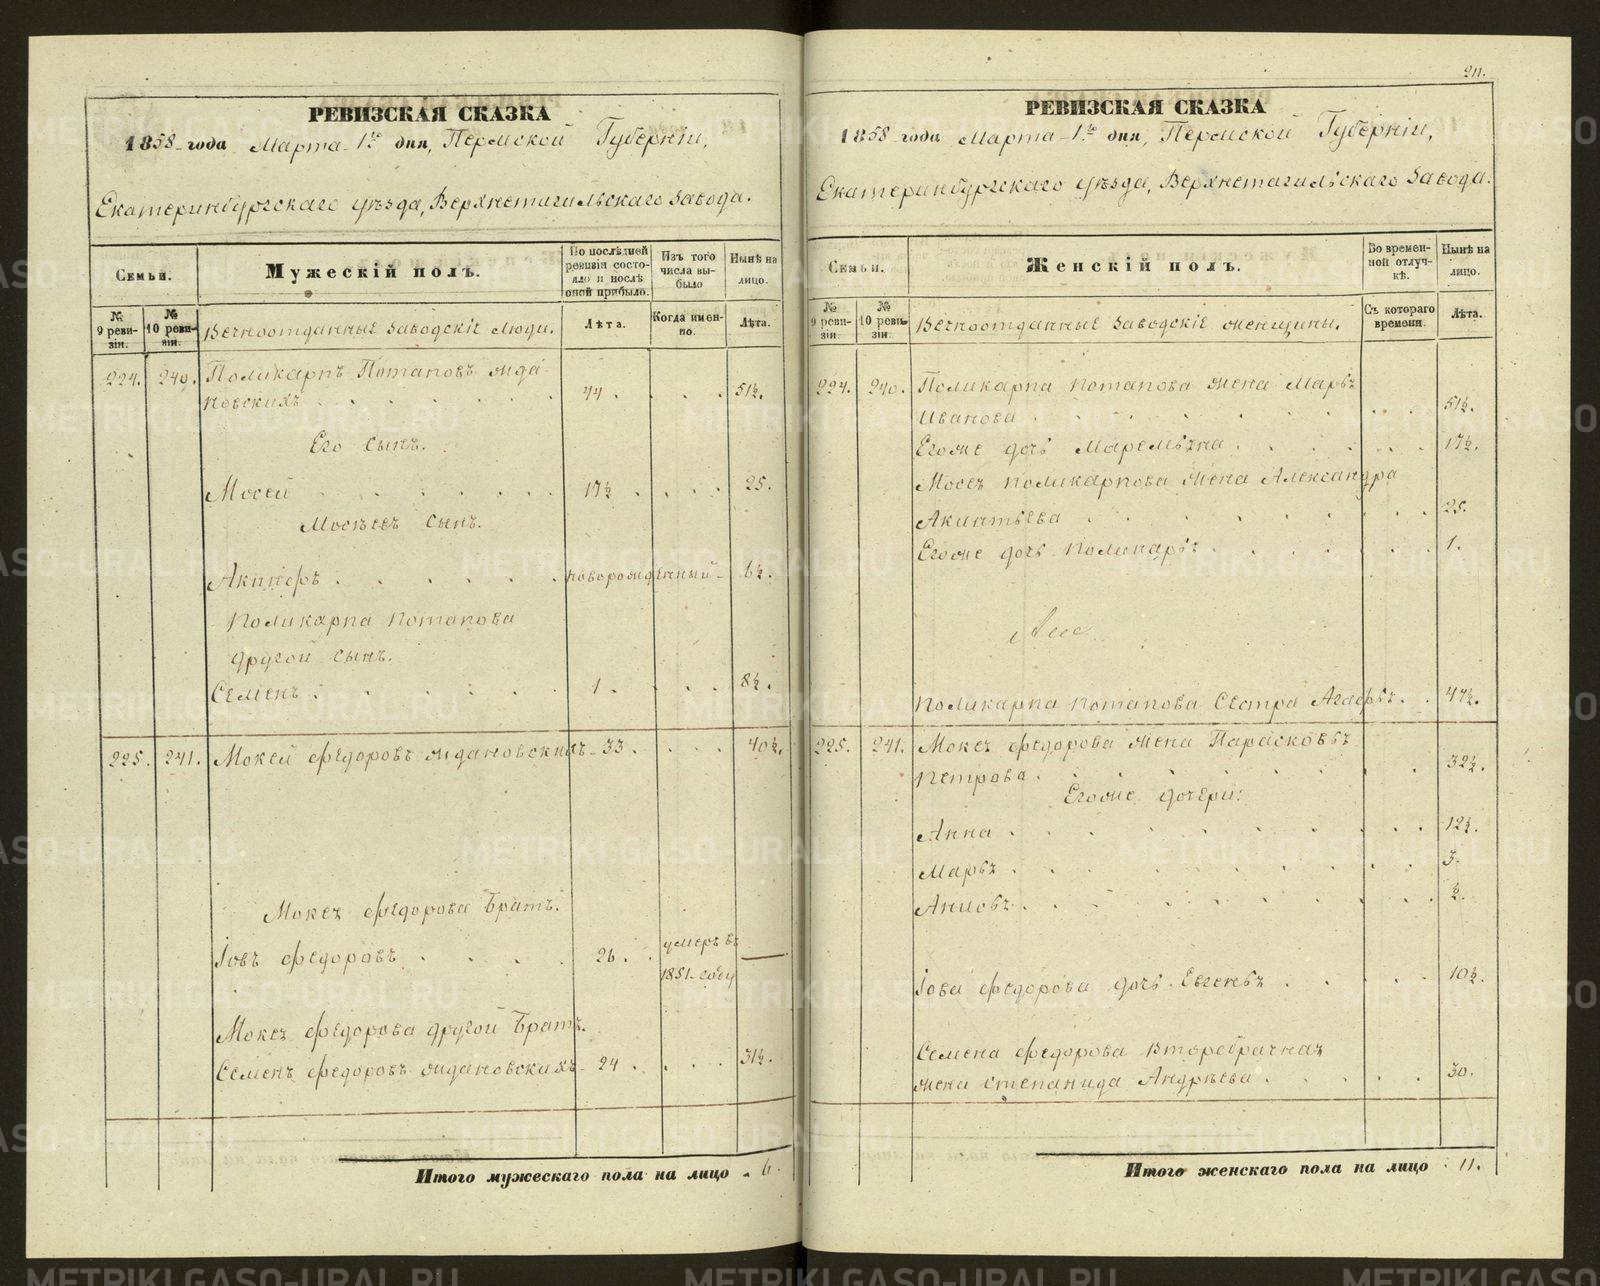 РЕВИЗСКАЯ СКАЗКА
1858 года Марта 1го дня, Пермской Губерніи,
Екатеринбургскаго уѣзда, Верхнетагильскаго завода.
Семьи.
Мужескій полъ.
По послѣдней ревизіи состояло и послѣ оной прибыло.
Изъ того числа выбыло
Нынѣ на лицо.
№ 9 ревизіи.
№ 10 ревизіи.
Вечноотданные заводскіе люди.
Лѣта.
Когда именно.
Лѣта.
224. 240. Поликарпъ Потаповъ ждановскихъ 44. 51½.
Его сынъ.
Мосей 17½ 25.
Мосѣевъ сынъ.
новорожденный 6½.
Поликарпа Потапова
другой сынъ.
Семенъ 1. 8½.
225. 241. Мокей федоровъ ждановскихъ 33. 40½.
Мокея федорова братъ.
Іовъ федоровъ 26. умеръ въ 1851 году —
Мокея федорова другой братъ.
Семенъ федоровъ ждановскихъ 24. 31½.
Итого мужескаго пола на лицо 6.
211.
РЕВИЗСКАЯ СКАЗКА
1858 года Марта 1го дня, Пермской Губерніи,
Екатеринбургскаго уѣзда, Верхнетагильскаго завода.
Семьи.
Женскій полъ.
Во временной отлучкѣ.
Нынѣ на лицо.
№ 9 ревизіи.
№ 10 ревизіи.
Вечноотданные заводскіе женщины.
Съ котораго времени.
Лѣта.
224. 240. Поликарпа потапова жена Марья
Иванова 51½.
Егоже дочь Маремьяна 17½.
Мосея поликарпова жена Александра
Акинтьева 25.
Егоже дочь 1.
Поликарпа потапова сестра Агафья 47½.
225. 241. Мокея федорова жена Парасковья
петрова 32½.
Егоже дочери:
Анна 12½.
Марья 3.
½.
Іова федорова дочь Евгенья 10½.
Семена федорова второбрачная
жена степанида Андрѣева 30.
Итого женскаго пола на лицо 11.
METRIKI.GASO-URAL.RU